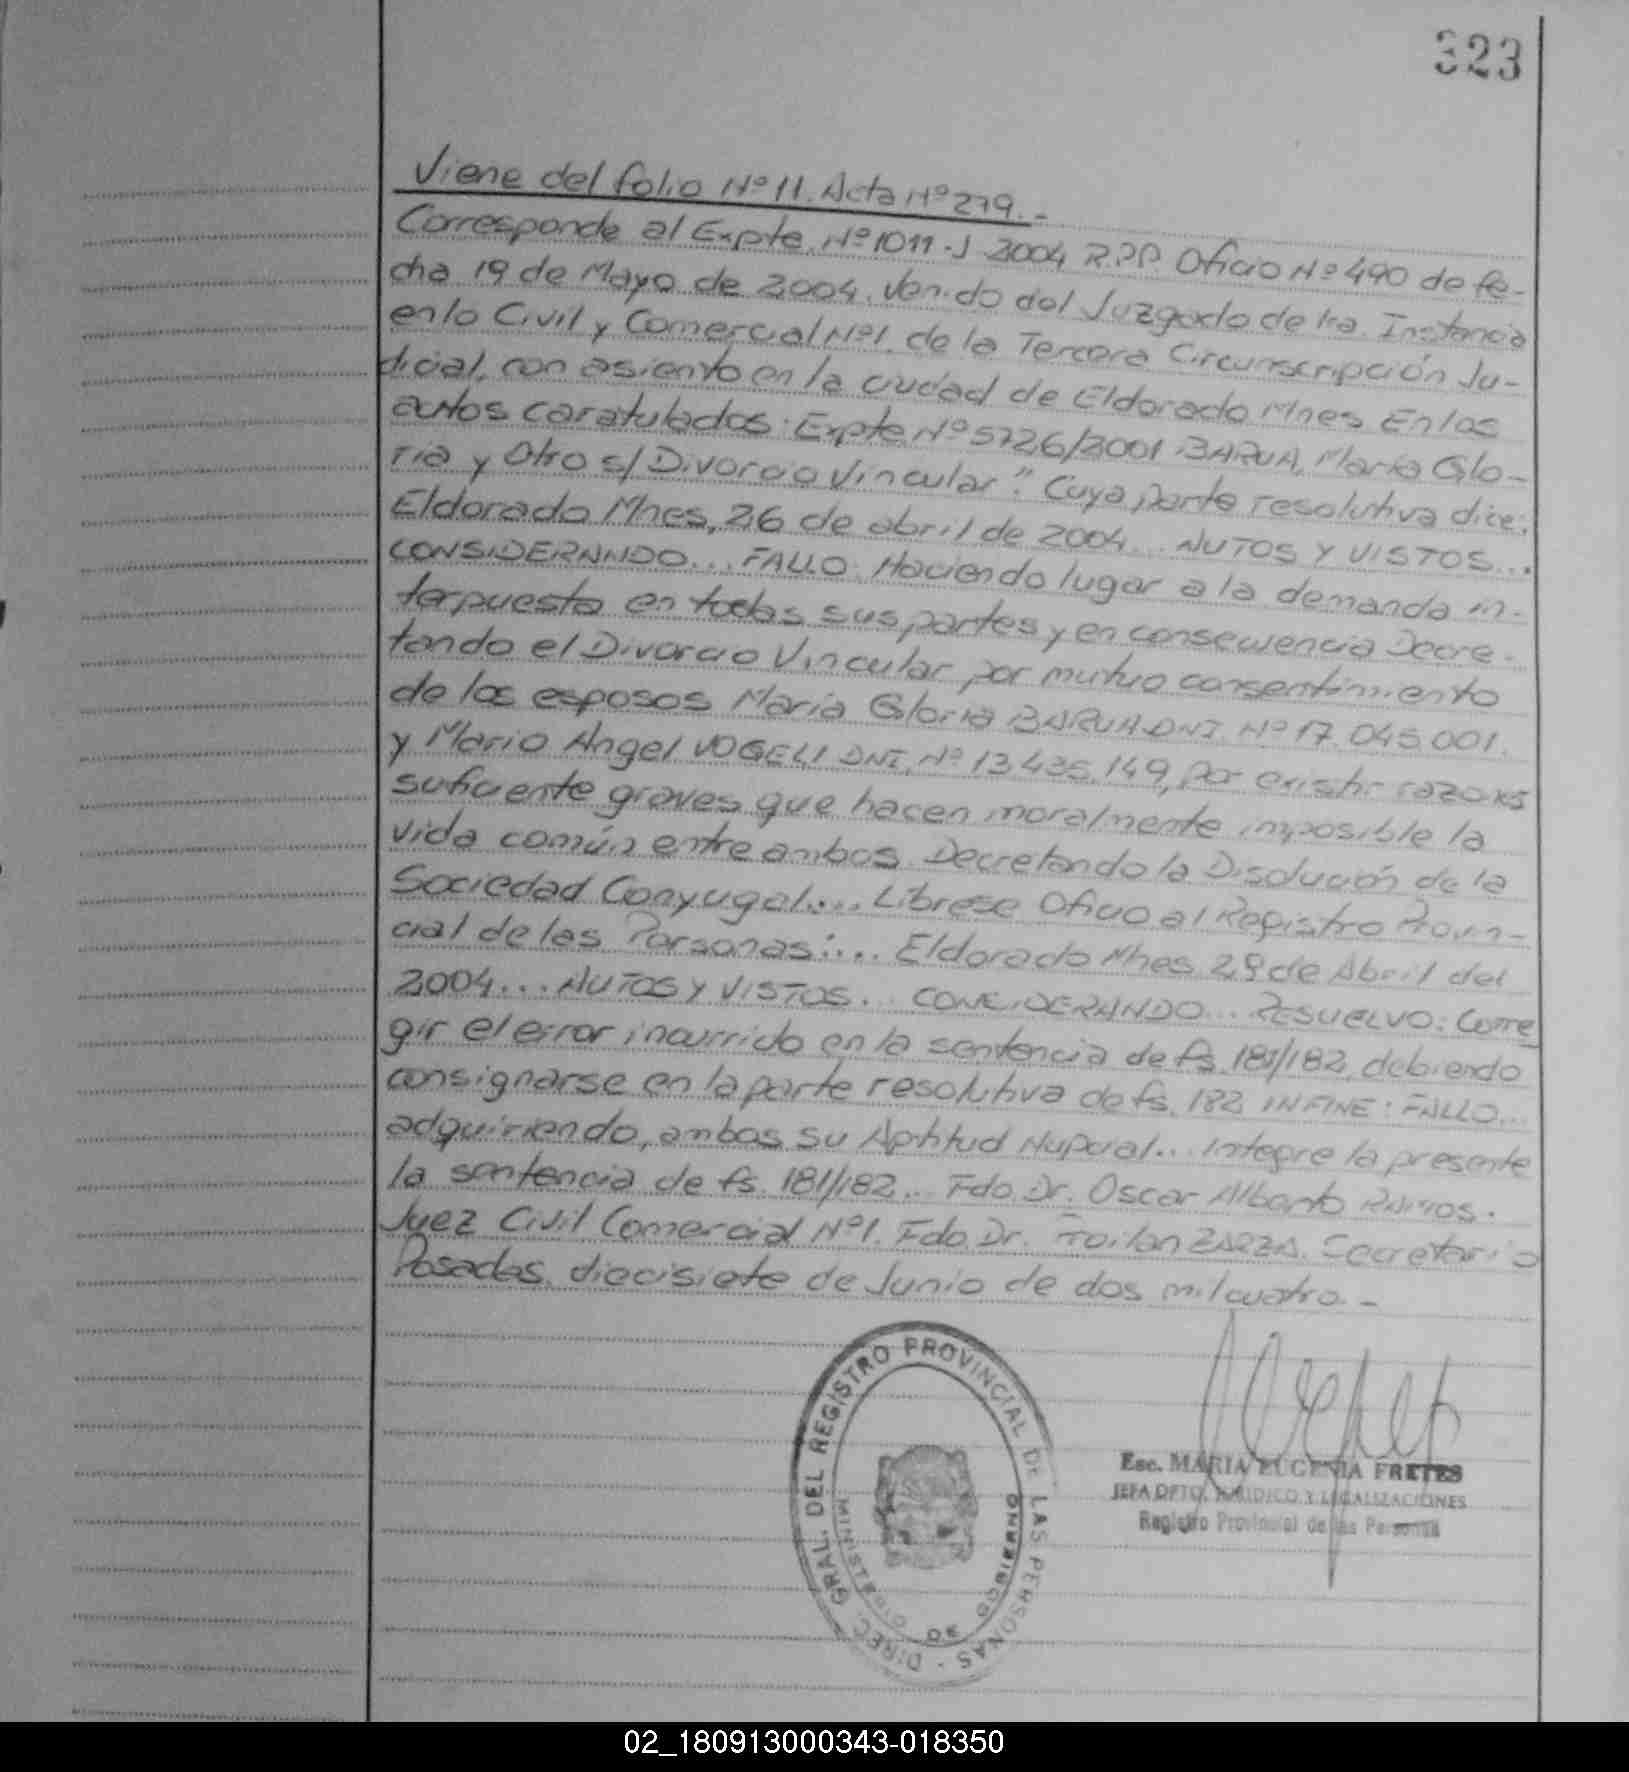 323
Viene del folio Nº 11. Acta Nº 279.-
Corresponde al Expte. Nº 1011-J 2004 R.P.P. Oficio Nº 490 de fe-
cha 19 de Mayo de 2004. Venido del Juzgado de 1ra. Instancia
en lo Civil y Comercial Nº1. de la Tercera Circunscripción Ju-
dicial, con asiento en la ciudad de Eldorado Mnes. En los
autos caratulados: Expte. Nº 5726/2001 BARUA, María Glo-
ria y Otro s/ Divorcio Vincular". Cuya parte resolutiva dice:
Eldorado Mnes, 26 de abril de 2004... AUTOS Y VISTOS...
CONSIDERANDO... FALLO: Haciendo lugar a la demanda in-
terpuesta en todas sus partes y en consecuencia Decre-
tando el Divorcio Vincular por mutuo consentimiento
de los esposos María Gloria BARUA DNI. Nº 17.045.001.
y Mario Angel VOGELI DNI. Nº 13.435.149, por existir razones
suficiente graves que hacen moralmente imposible la
vida común entre ambos. Decretando la Disolución de la
Sociedad Conyugal.... Líbrese Oficio al Registro Provin-
cial de las Personas:... Eldorado Mnes 29 de Abril del
2004... AUTOS Y VISTOS... CONCIDERANDO... RESUELVO: Corre
gir el error incurrido en la sentencia de fs. 181/182, debiendo
consignarse en la parte resolutiva de fs. 182 IN FINE: FALLO...
adquiriendo, ambos su Aptitud Nupcial... Integre la presente
la sentencia de fs. 181/182... Fdo. Dr. Oscar Alberto RAMOS.
Juez Civil Comercial Nº1. Fdo. Dr. Froilan ZARZA. Secretario
Posadas, diecisiete de Junio de dos mil cuatro.-
DIREC. GRAL. DEL REGISTRO PROVINCIAL DE LAS PERSONAS -
MINISTERIO DE GOBIERNO
Esc. MARIA EUGENIA FRETES
JEFA DPTO. JURIDICO Y LEGALIZACIONES
Registro Provincial de las Personas
02_180913000343-018350